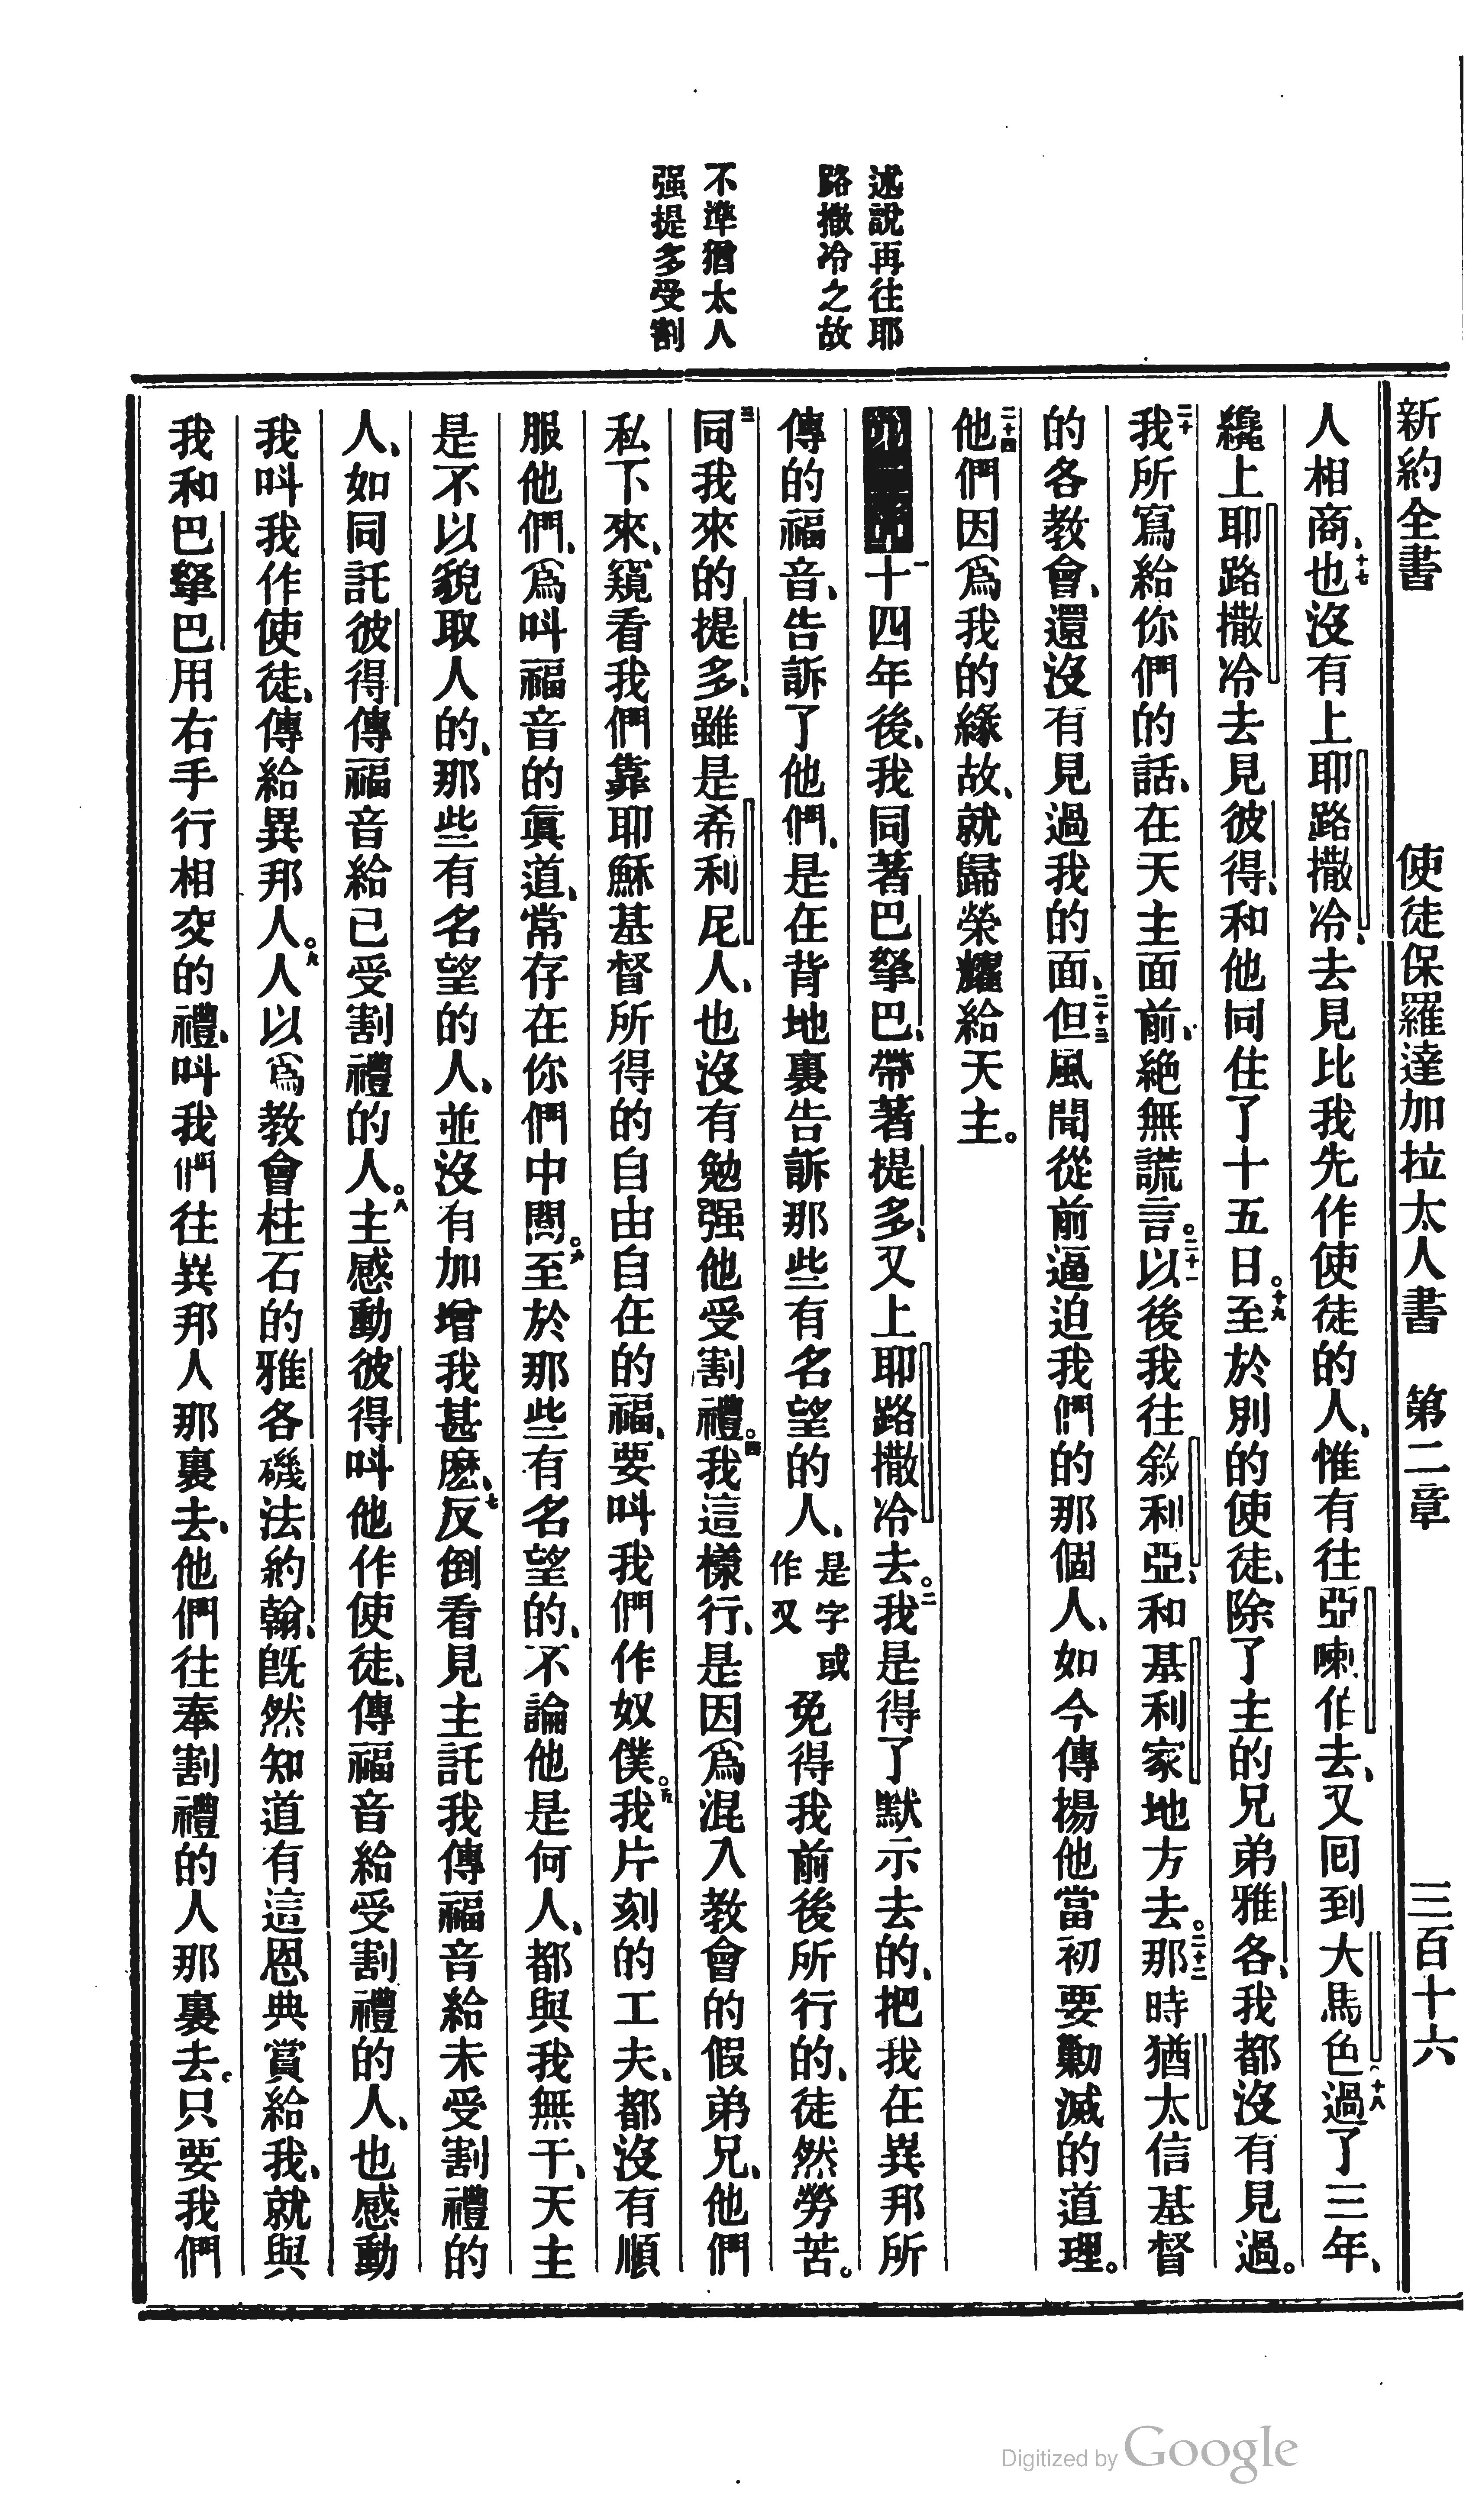 新約全書 使徒保羅達加拉太人書 第二章 三百十六
述說再往耶
路撒冷之故
不準猶太人
强提多受割
人相商、十七也沒有上耶路撒冷、去見比我先作使徒的人、惟有往亞喇伯去、又回到大馬色。十八過了三年、
纔上耶路撒冷去見彼得、和他同住了十五日。十九至於別的使徒、除了主的兄弟雅各、我都沒有見過。
二十我所寫給你們的話、在天主面前、絕無謊言。二十一以後我往敘利亞、和基利家地方去。二十二那時猶太信基督
的各教會、還沒有見過我的面、二十三但風聞從前逼迫我們的那個人、如今傳揚他當初要勦滅的道理。
二十四他們因爲我的緣故、就歸榮耀給天主。
一十四年後、我同著巴拏巴、帶著提多、又上耶路撒冷去。二我是得了默示去的、把我在異邦所
傳的福音、告訴了他們、是在背地裏告訴那些有名望的人、是字或作又免得我前後所行的、徒然勞苦。
三同我來的提多、雖是希利尼人、也沒有勉强他受割禮。四我這樣行、是因爲混入教會的假弟兄、他們
私下來、窺看我們靠耶穌基督所得的自由自在的福、要叫我們作奴僕。五我片刻的工夫、都沒有順
服他們、爲叫福音的眞道、常存在你們中間。六至於那些有名望的、不論他是何人、都與我無干、天主
是不以貌取人的、那些有名望的人、並沒有加增我甚麽、七反倒看見主託我傳福音給未受割禮的
人、如同託彼得傳福音給已受割禮的人。八主感動彼得叫他作使徒、傳福音給受割禮的人、也感動
我叫我作使徒、傳給異邦人。九人以爲教會柱石的雅各磯法約翰、旣然知道有這恩典賞給我、就與
我和巴拏巴用右手行相交的禮、叫我們往異邦人那裏去、他們往奉割禮的人那裏去。只要我們
Digitized by Google